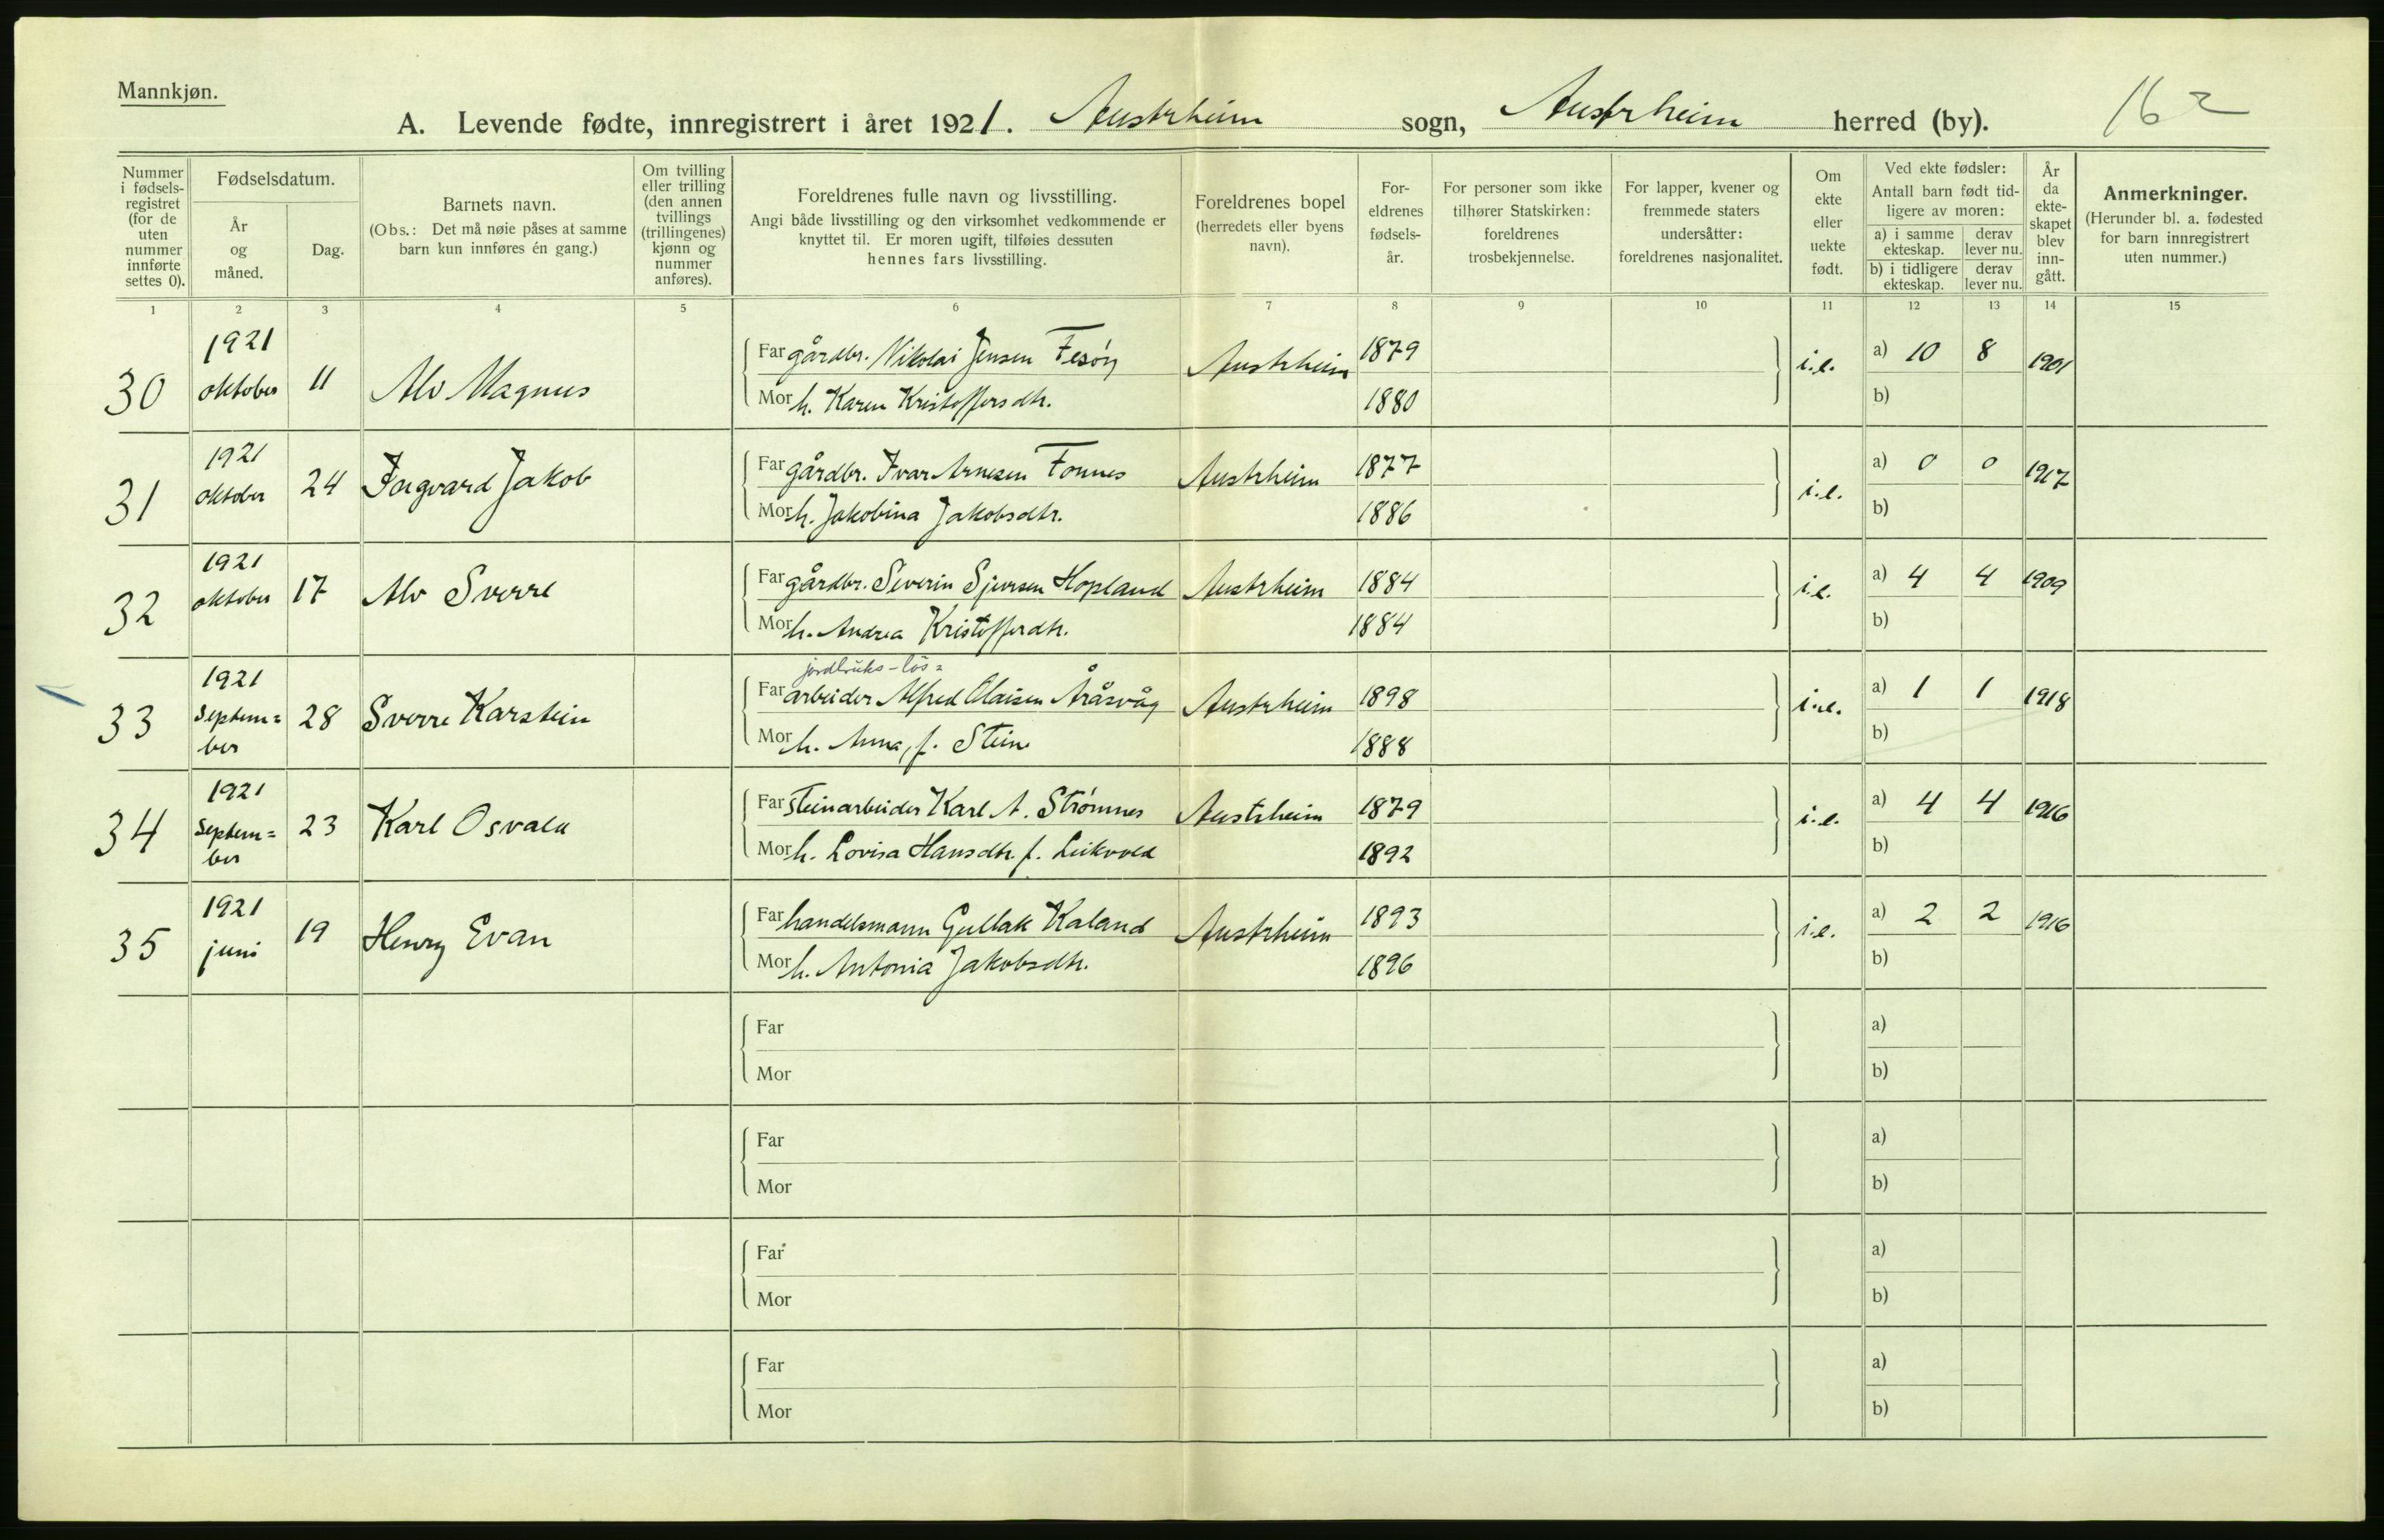 Mannkjøn.
A. Levende fødte, innregistrert i året 1921. Austrheim sogn, Austrheim herred (by). 162
Nummer i fødsels-registret (for de uten nummer innførte settes 0).
Fødselsdatum.
År og måned.
Dag.
Barnets navn.
(Obs.: Det må nøie påses at samme barn kun innføres én gang.)
Om tvilling eller trilling (den annen tvillings (trillingenes) kjønn og nummer anføres).
Foreldrenes fulle navn og livsstilling.
Angi både livsstilling og den virksomhet vedkommende er knyttet til. Er moren ugift, tilføies dessuten hennes fars livsstilling.
Foreldrenes bopel (herredets eller byens navn).
For-eldrenes fødsels-år.
For personer som ikke tilhører Statskirken: foreldrenes trosbekjennelse.
For lapper, kvener og fremmede staters undersåtter: foreldrenes nasjonalitet.
Om ekte eller uekte født.
Ved ekte fødsler:
Antall barn født tid-ligere av moren:
a) i samme ekteskap. derav lever nu.
b) i tidligere ekteskap. derav lever nu.
År da ekte-skapet blev inn-gått.
Anmerkninger.
(Herunder bl. a. fødested for barn innregistrert uten nummer.)
1 2 3 4 5 6 7 8 9 10 11 12 13 14 15
30 1921 oktober 11 Alv Magnus
Far gårdbr. Nikolai Jensen Fesöy Austrheim 1879 i.e. a) 10 8 1901
Mor h. Karen Kristoffersdtr. 1880 b)
31 1921 oktober 24 Ingvard Jakob
Far gårdbr. Ivar Arnesen Fonnes Austrheim 1877 i.e. a) 0 0 1917
Mor h. Jakobina Jakobsdtr. 1886 b)
32 1921 oktober 17 Alv Sverre
Far gårdbr. Severin Sjursen Hopland Austrheim 1884 i.e. a) 4 4 1909
Mor h. Andrea Kristofferdtr. 1884 b)
33 1921 Septem=ber 28 Sverre Karstein
jordbruks-lös=
Far arbeider Alfred Olaisen Åråsvåg Austrheim 1898 i.e. a) 1 1 1918
Mor h. Anna, f. Stein 1888 b)
34 1921 Septem=ber 23 Karl Osvald
Far steinarbeider Karl A. Strömnes Austrheim 1879 i.e. a) 4 4 1916
Mor h. Lovisa Hansdtr. f. Leikvold 1892 b)
35 1921 juni 19 Henry Evan
Far handelsmann Gullak Kaland Austrheim 1893 i.e. a) 2 2 1916
Mor h. Antonia Jakobsdtr. 1896 b)
Far a)
Mor b)
Far a)
Mor b)
Far a)
Mor b)
Far a)
Mor b)